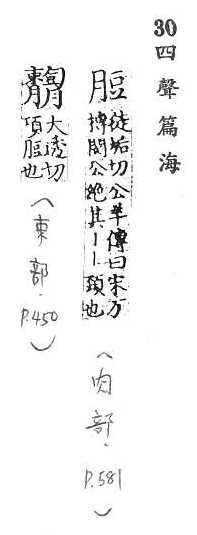 30 四聲篇海
脰
徒垢切公羊傳曰宋万
搏閔公絕其丨丨頸也
（肉部．P.581）
大透切
項脰也
（東部．P.450）